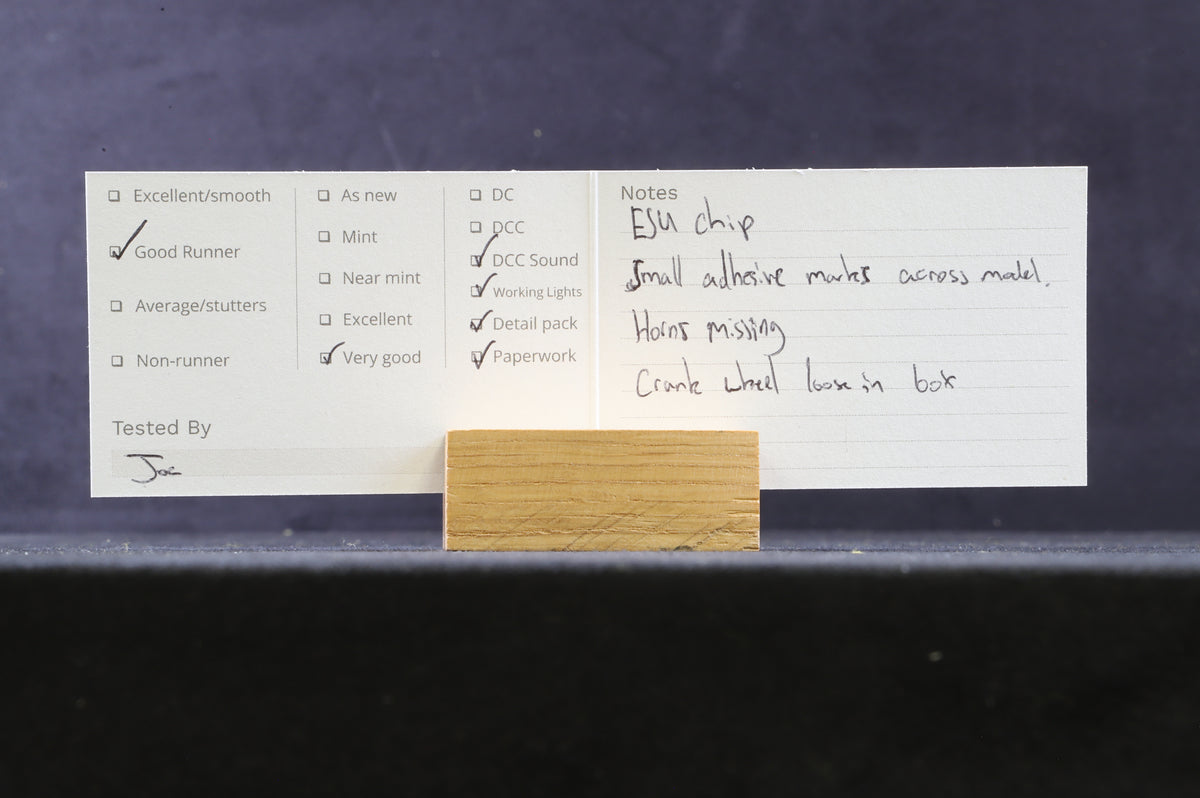 Excellent/smooth
Good Runner
Average/stutters
Non-runner
As new
Mint
Near mint
Excellent
Very good
DC
DCC
DCC Sound
Working Lights
Detail pack
Paperwork
Tested By
Joe
Notes
ESU chip
Small adhesive marks across model.
Horns missing
Crank wheel loose in box